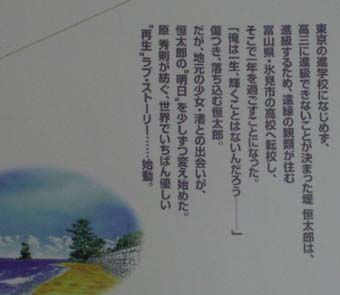 東京の進学校になじめず、
高三に進級できないことが決まった堤 恒太郎は、
進級するため、遠縁の親類が住む
富山県・氷見市の高校へ転校し、
そこで一年を過ごすことになった。
「俺は一生、輝くことはないんだろう――」
傷つき、落ち込む恒太郎。
だが、地元の少女・渚との出会いが、
恒太郎の〝明日〟を少しずつ変え始めた。
原 秀則が紡ぐ、世界でいちばん優しい
〝再生〟ラブ・ストーリー……始動。